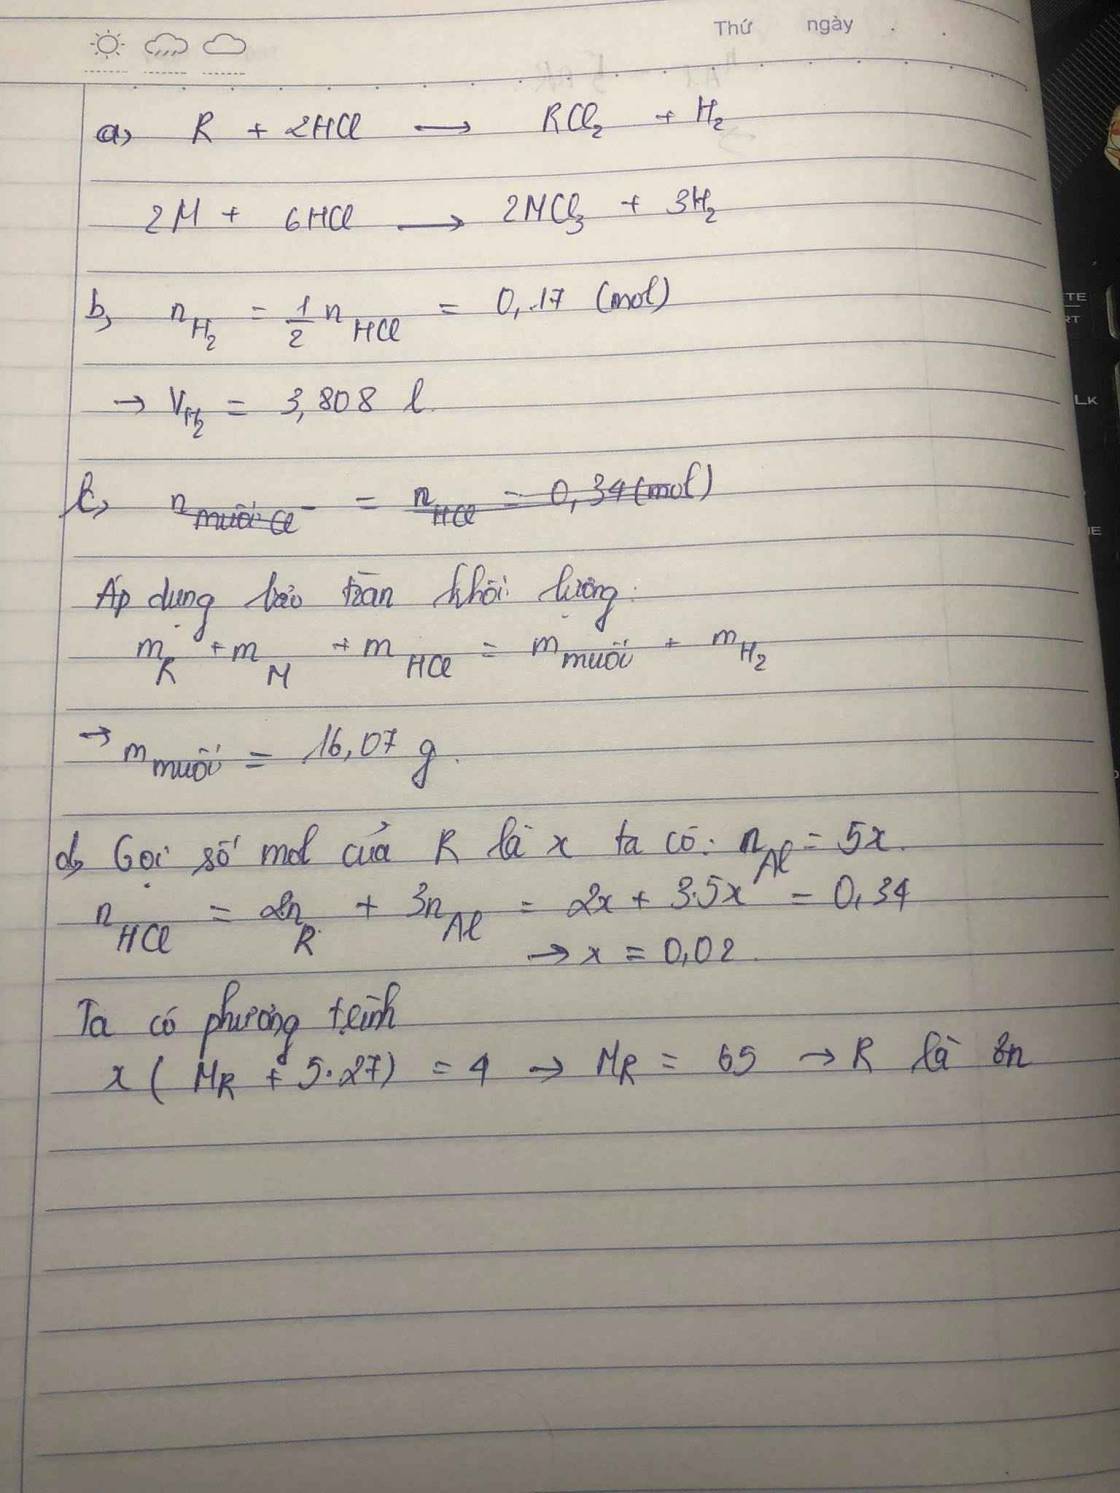 Thứ ngày
a, R + 2HCl → RCl₂ + H₂
2M + 6HCl → 2MCl₃ + 3H₂
b, n_H₂ = 1/2 n_HCl = 0,17 (mol)
→ V_H₂ = 3,808 l.
c, n_muối Cl⁻ = n_HCl = 0,34 (mol)
Áp dụng bảo toàn khối lượng:
m_R + m_M + m_HCl = m_muối + m_H₂
→ m_muối = 16,07 g.
d, Gọi số mol của R là x ta có: n_Al = 5x.
n_HCl = 2n_R + 3n_Al = 2x + 3.5x = 0,34
→ x = 0,02.
Ta có phương trình
x ( M_R + 5.27) = 4 → M_R = 65 → R là Zn